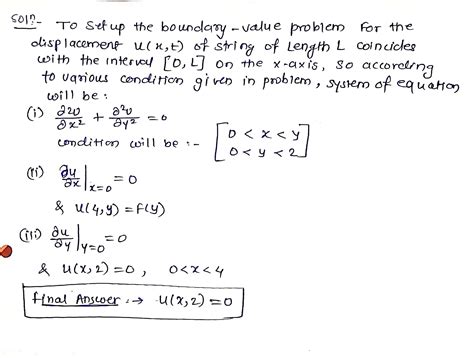 Sol?:- To set up the boundary-value problem for the
displacement u(x,t) of string of length L coincides
with the interval [0,L] on the x-axis, so according
to various condition given in problem, system of equation
will be:
(i) ∂²u/∂x² + ∂²u/∂y² = 0
condition will be :- [0 < x < y
0 < y < 2]
(ii) ∂u/∂x |x=0 = 0
& u(4,y) = f(y)
(iii) ∂u/∂y |y=0 = 0
& u(x,2) = 0 , 0<x<4
Final Answer :→ u(x,2) = 0